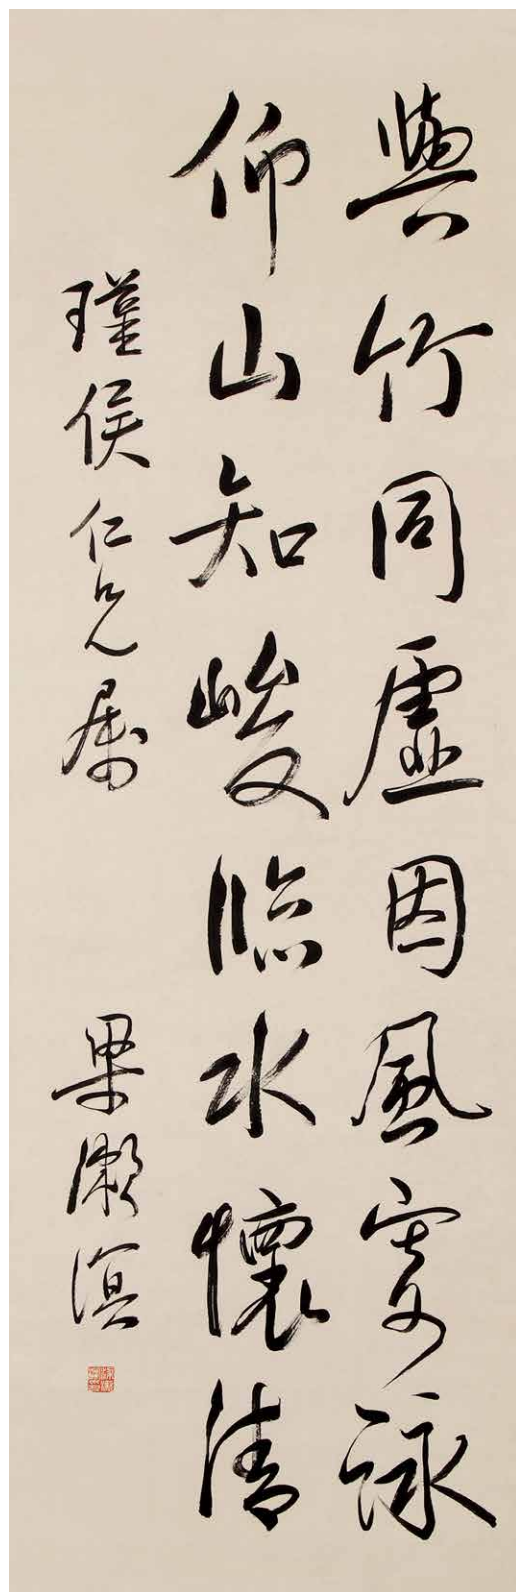 與竹同虛因風寄詠
仰山知峻臨水懷清
瑾侯仁兄属
梁漱溟